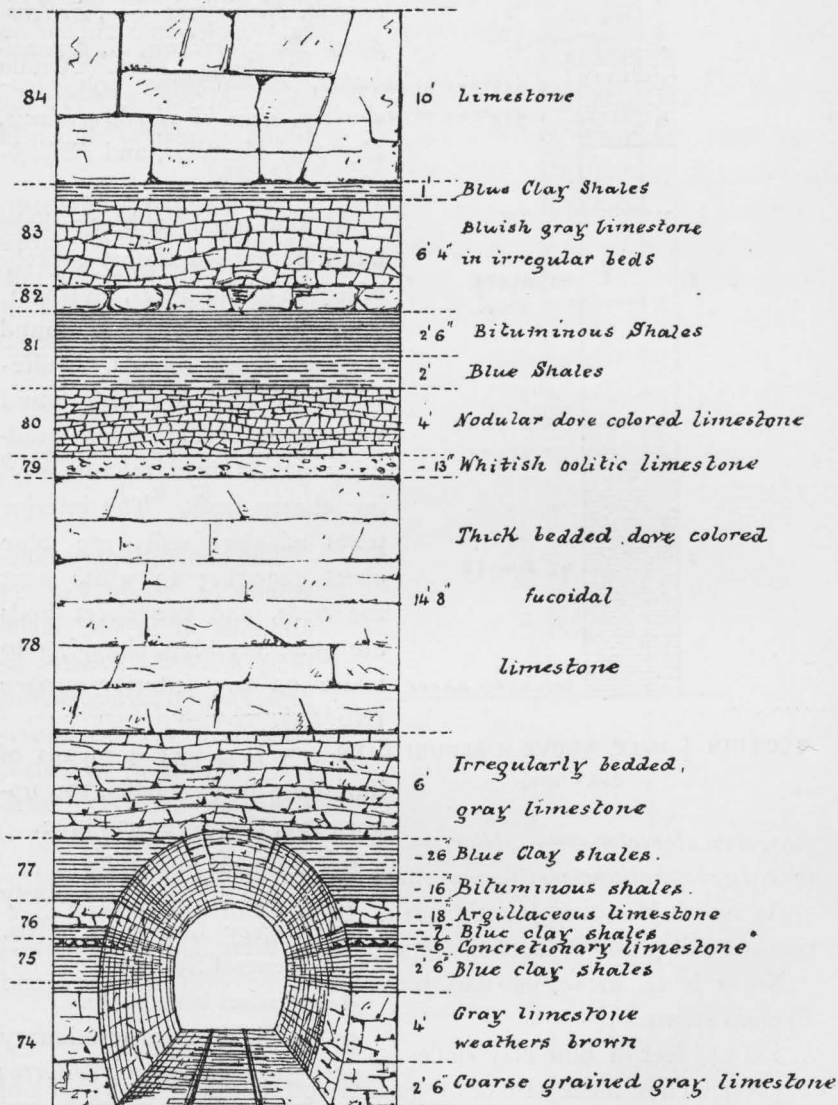 84 10' Limestone
1' Blue Clay Shales
83 6' 4" Bluish gray limestone
in irregular beds
82
81 2' 6" Bituminous Shales
2' Blue Shales
80 4' Nodular dove colored limestone
79 - 13" Whitish oolitic limestone
Thick bedded dove colored
14' 8" fucoidal
78 limestone
6' Irregularly bedded,
gray limestone
77 - 26" Blue Clay shales.
- 16" Bituminous shales.
76 - 18" Argillaceous limestone
- 7" Blue clay shales
- 6" Concretionary limestone
75 2' 6" Blue clay shales
74 4' Gray limestone
weathers brown
2' 6" Coarse grained gray limestone